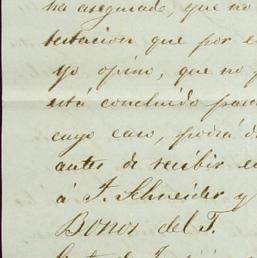 ha asegurado, que no
testacion que por e
yo opino, que no p
está concluido para
cuyo caso, podrá d
antes de recibir e
á F. Schneider y
Bonos del F.